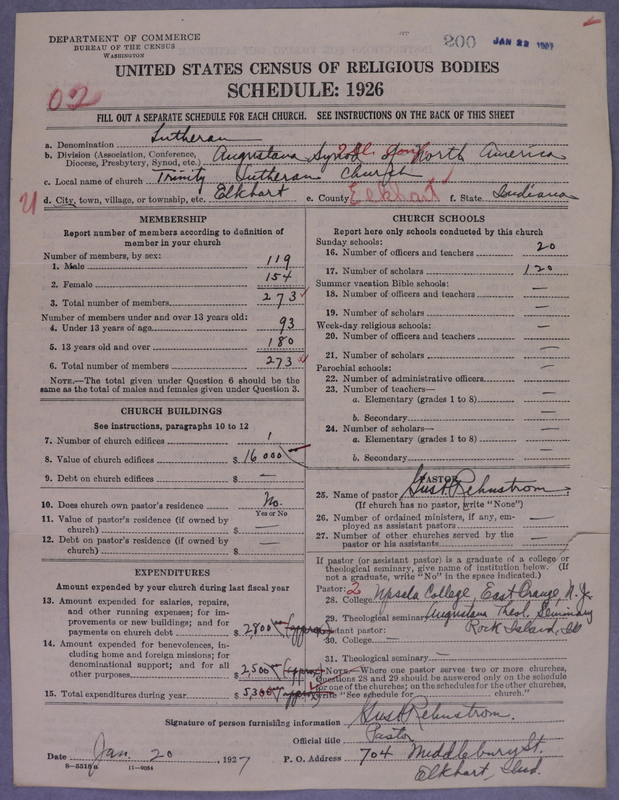 DEPARTMENT OF COMMERCE
BUREAU OF THE CENSUS
WASHINGTON
200 JAN 22
UNITED STATES CENSUS OF RELIGIOUS BODIES
SCHEDULE: 1926
02
FILL OUT A SEPARATE SCHEDULE FOR EACH CHURCH. SEE INSTRUCTIONS ON THE BACK OF THIS SHEET
a. Denomination Lutheran
b. Division (Association, Conference, Diocese, Presbytery, Synod, etc.) Augustana Synod of North America
c. Local name of church Trinity Lutheran Church
U
d. City, town, village, or township, etc. Elkhart e. County Elkhart f. State Indiana
MEMBERSHIP
Report number of members according to definition of
member in your church
Number of members, by sex:
1. Male 119
2. Female 154
3. Total number of members 273
Number of members under and over 13 years old:
4. Under 13 years of age 93
5. 13 years old and over 180
6. Total number of members 273
NOTE.—The total given under Question 6 should be the
same as the total of males and females given under Question 3.
CHURCH BUILDINGS
See instructions, paragraphs 10 to 12
7. Number of church edifices 1
8. Value of church edifices $ 16 000
9. Debt on church edifices $ —
10. Does church own pastor's residence? No.
Yes or No
11. Value of pastor's residence (if owned by
church) $ —
12. Debt on pastor's residence (if owned by
church) $ —
EXPENDITURES
Amount expended by your church during last fiscal year
13. Amount expended for salaries, repairs,
and other running expenses; for im-
provements or new buildings; and for
payments on church debt $ 2800 (approx)
14. Amount expended for benevolences, in-
cluding home and foreign missions; for
denominational support; and for all
other purposes $ 2500 (approx)
15. Total expenditures during year $ 5300 (approx)
CHURCH SCHOOLS
Report here only schools conducted by this church
Sunday schools:
16. Number of officers and teachers 20
17. Number of scholars 120
Summer vacation Bible schools:
18. Number of officers and teachers —
19. Number of scholars —
Week-day religious schools:
20. Number of officers and teachers —
21. Number of scholars —
Parochial schools:
22. Number of administrative officers —
23. Number of teachers—
a. Elementary (grades 1 to 8) —
b. Secondary —
24. Number of scholars—
a. Elementary (grades 1 to 8) —
b. Secondary —
PASTOR
25. Name of pastor Gust. Rehnstrom
(If church has no pastor, write "None")
26. Number of ordained ministers, if any, em-
ployed as assistant pastors —
27. Number of other churches served by the
pastor or his assistants —
If pastor (or assistant pastor) is a graduate of a college or
theological seminary, give name of institution below. (If
not a graduate, write "No" in the space indicated.)
Pastor: 2
28. College Upsala College, East Orange, N. J.
29. Theological seminary Augustana Theol. Seminary
Rock Island, Ill
Assistant pastor:
30. College —
31. Theological seminary —
NOTE.—Where one pastor serves two or more churches,
Questions 28 and 29 should be answered only on the schedule
for one of the churches; on the schedules for the other churches,
write "See schedule for church."
Signature of person furnishing information Gust. Rehnstrom.
Official title Pastor
Date Jan. 20, 1927 P. O. Address 704 Middlebury St.
Elkhart, Ind.
8—5518a 11—9054